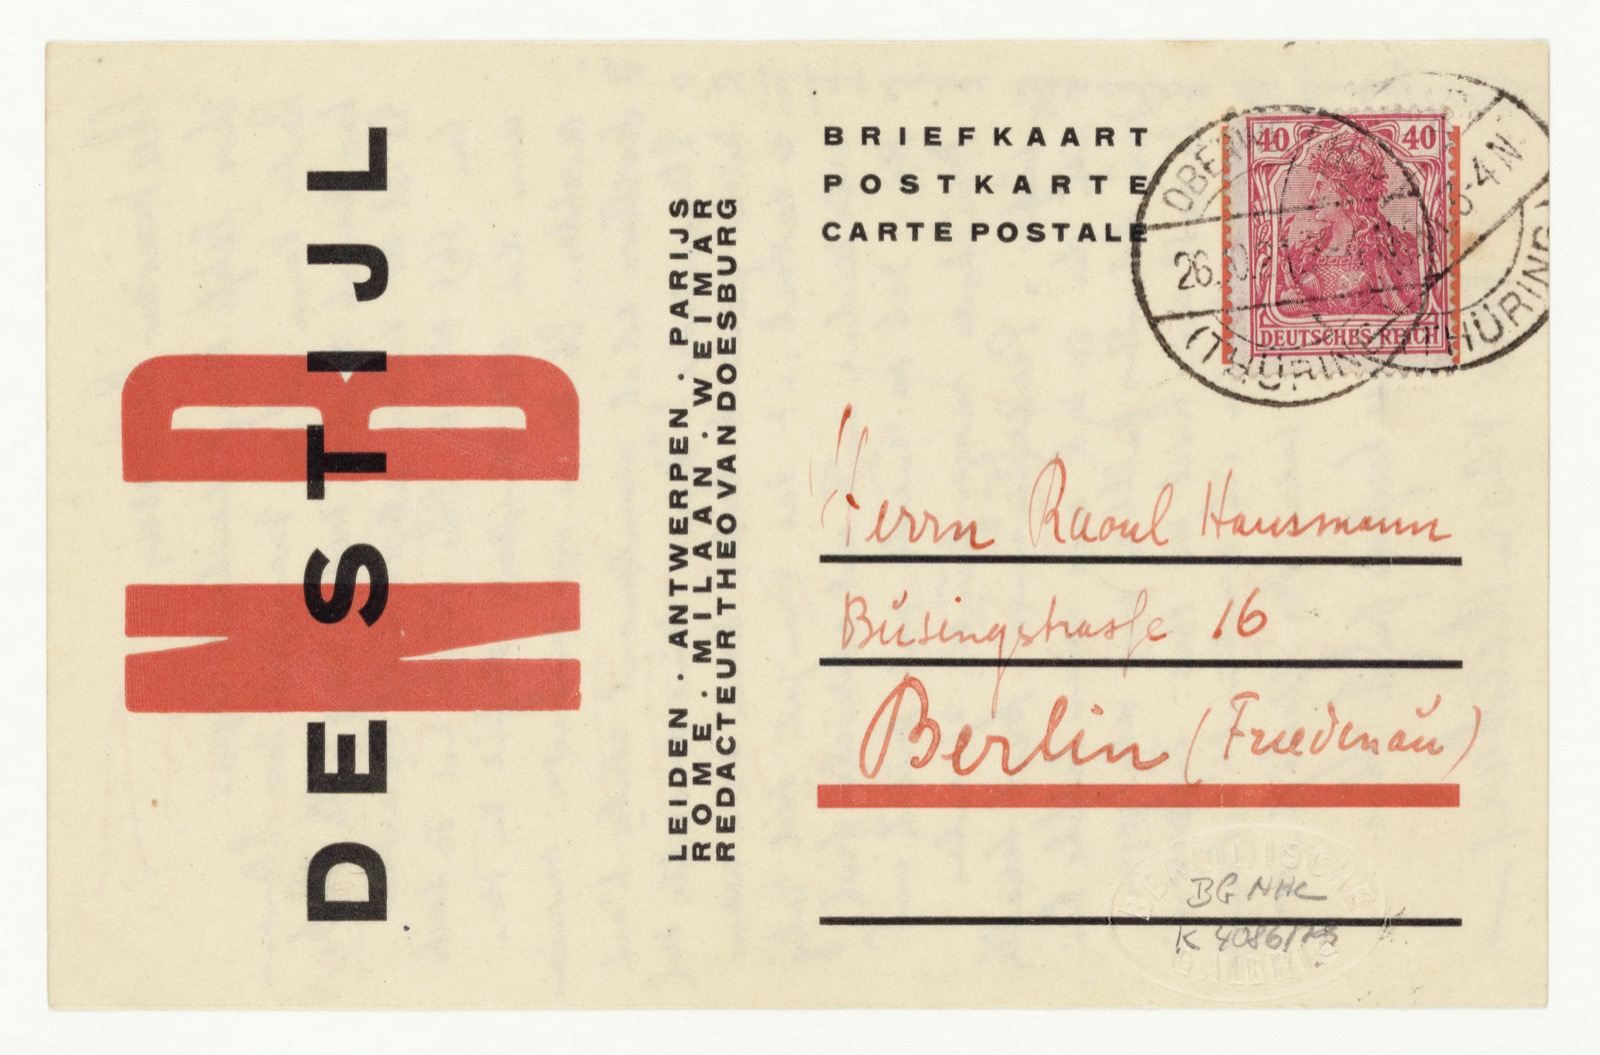 DE STIJL
NB
LEIDEN · ANTWERPEN · PARIJS
ROME · MILAAN · WEIMAR
REDACTEUR THEO VAN DOESBURG
BRIEFKAART
POSTKARTE
CARTE POSTALE
40 40
DEUTSCHES REICH
26.10.21
(THÜRINGEN)
6-4N.
THÜRING
Herrn Raoul Hausmann
Büsingstrasse 16
Berlin (Friedenau)
BG NHC
K 4086/